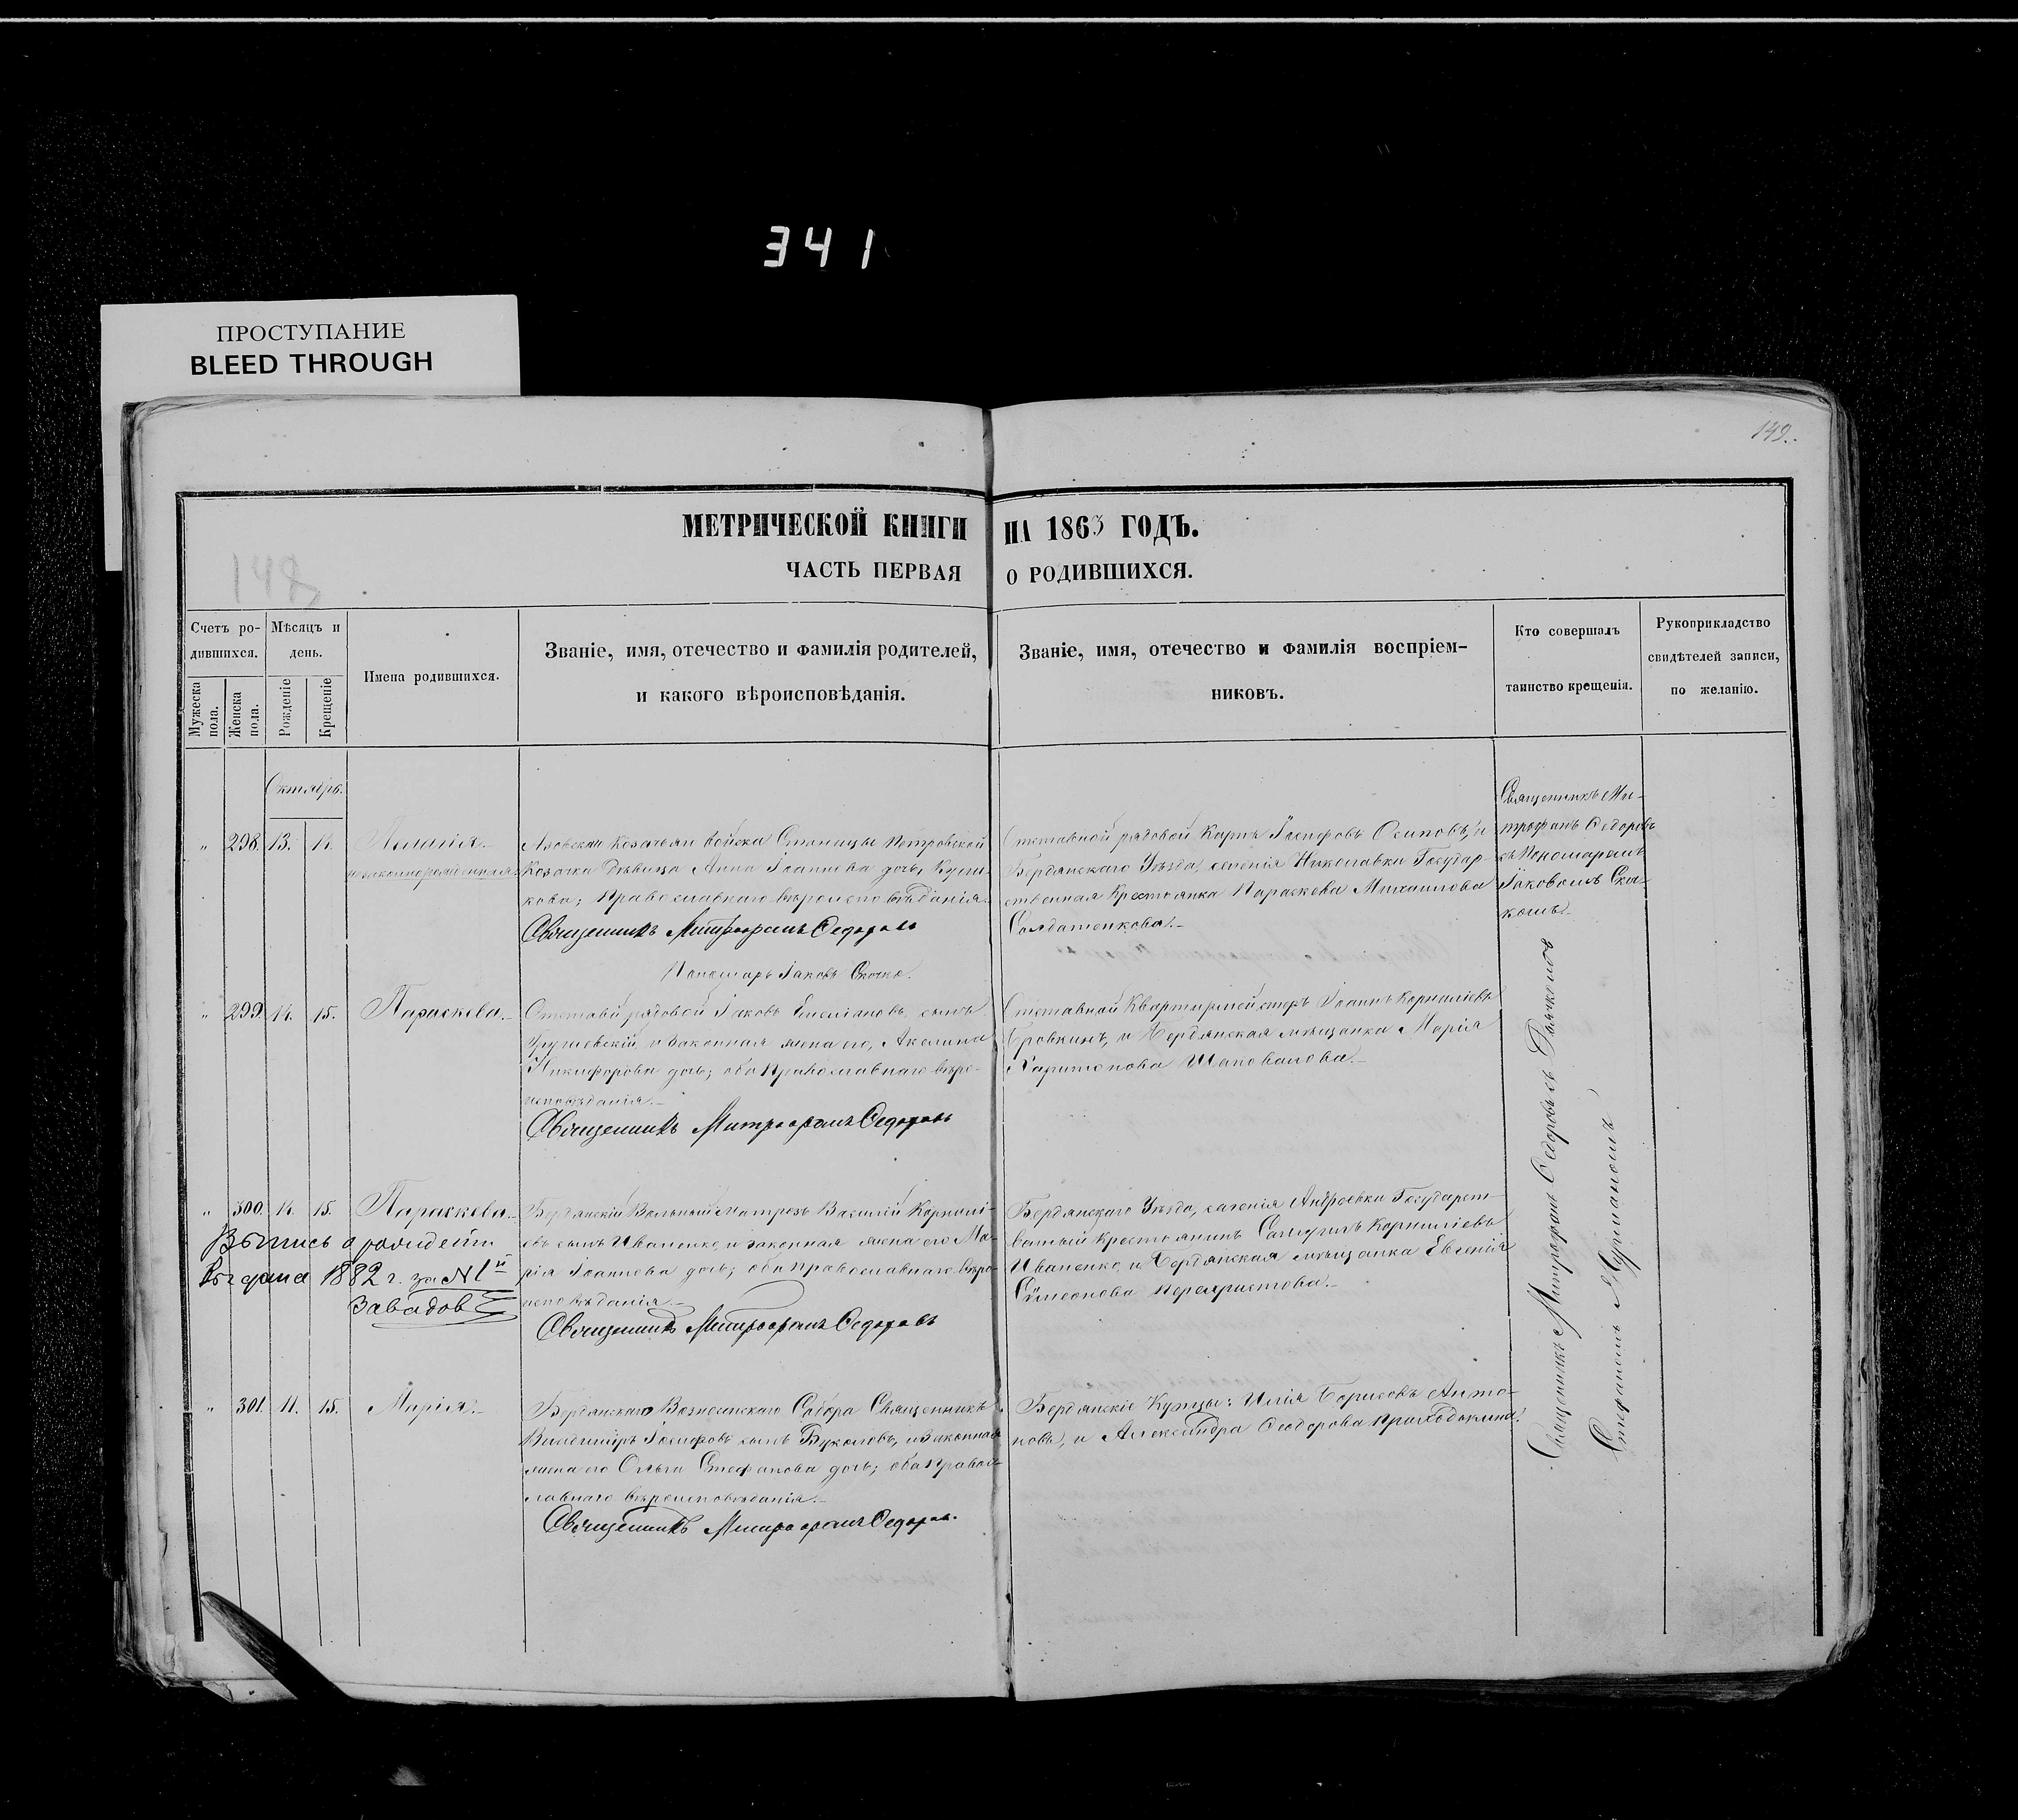 341
ПРОСТУПАНИЕ
BLEED THROUGH
149.
148
МЕТРИЧЕСКОЙ КНИГИ НА 1863 ГОДЪ.
ЧАСТЬ ПЕРВАЯ О РОДИВШИХСЯ.
Счетъ ро-
дившихся.
Мужеска пола.
Женска пола.
Мѣсяцъ и
день.
Рожденіе
Крещеніе
Имена родившихся.
Званіе, имя, отечество и фамилія родителей,
и какого вѣроисповѣданія.
Званіе, имя, отечество и фамилія воспріем-
никовъ.
Кто совершалъ
таинство крещенія.
Рукоприкладство
свидѣтелей записи,
по желанію.
Октябрь.
" 298. 13. 14.
незаконнорожденная
Азовскаго Козачьяго войска Станицы Петровской
Козачка Дѣвица Анна Іоаннова дочь
кова; Православнаго вѣроисповѣданія.
Священникъ Митрофанъ Ѳедоровъ
Пономарь Іаковъ Скочко.
Отставной рядовой Карпъ Іосифовъ Осиповъ, и
Бердянскаго Уѣзда, селенія Николаевки Государ-
ственная Крестьянка Параскева Михаилова
Солдатенкова.
Священникъ Ми-
трофанъ Ѳедоровъ
съ Пономаремъ
Іаковомъ Скоч-
комъ
" 299. 14. 15. Параскева.
Отставной рядовой Іаковъ Емеліановъ сынъ
и законная жена его, Акилина
Никифорова дочь; оба Православнаго вѣро-
исповѣданія.
Священникъ Митрофанъ Ѳедоровъ
Отставной Квартирмейстеръ Іоаннъ Корниліевъ
Бровкинъ, и Бердянская мѣщанка Марія
Харитонова Шаповалова.
" 300. 14. 15. Параскева.
Выпись о рожденіи
выдана 1882 г. за № 1й
Завадов
Бердянскій Вольный матросъ Василій Корнилі-
евъ сынъ Иваненко, и законная жена его Ма-
рія Іоаннова дочь; оба православнаго вѣро-
исповѣданія.
Священникъ Митрофанъ Ѳедоровъ
Бердянскаго Уѣзда, селенія Андреевки Государст-
венный Крестьянинъ Самуилъ Корниліевъ
Иваненко, и Бердянская мѣщанка Евгенія
Сѵмеонова
" 301. 11. 15. Марія.
Бердянскаго Вознесенскаго Собора Священникъ
Владиміръ Іосифовъ сынъ Буколовъ, и законная
жена его Ольга Стефанова дочь; оба Правос-
лавнаго вѣроисповѣданія.
Священникъ Митрофанъ Ѳедоровъ.
Бердянскіе Купцы: Илія Борисовъ Анто-
новъ, и Александра Ѳеодорова
Священникъ Митрофанъ Ѳедоровъ съ
Стефаномъ